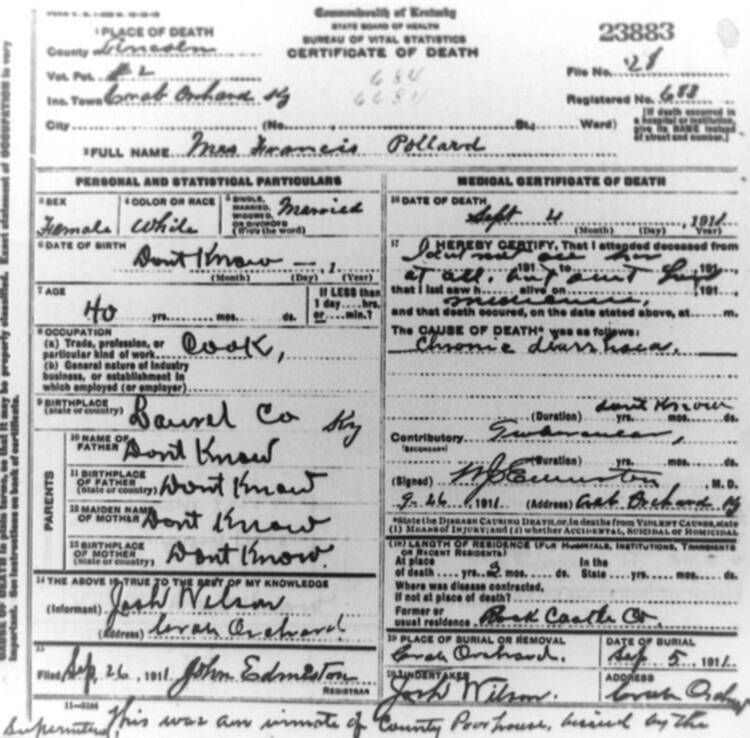 Commonwealth of Kentucky
STATE BOARD OF HEALTH
BUREAU OF VITAL STATISTICS
CERTIFICATE OF DEATH
23883
1 PLACE OF DEATH
County Lincoln
Vot. Pct. # 2
Inc. Town Crab Orchard Ky
City (No. St.; Ward)
684
6684
File No. 28
Registered No. 683
[If death occurred in a hospital or institution, give its NAME instead of street and number.]
2 FULL NAME Mrs Francis Pollard
PERSONAL AND STATISTICAL PARTICULARS
3 SEX Female
4 COLOR OR RACE White
5 SINGLE, MARRIED, WIDOWED, OR DIVORCED (Write the word) Married
6 DATE OF BIRTH
Dont Know — 1
(Month) (Day) (Year)
7 AGE
40 yrs. mos. ds.
If LESS than 1 day....hrs. or....min.?
8 OCCUPATION
(a) Trade, profession, or particular kind of work Cook,
(b) General nature of industry business, or establishment in which employed (or employer)
9 BIRTHPLACE (State or country) Laurel Co Ky
PARENTS
10 NAME OF FATHER Dont Know
11 BIRTHPLACE OF FATHER (State or country) Dont Know
12 MAIDEN NAME OF MOTHER Dont Know
13 BIRTHPLACE OF MOTHER (State or country) Dont Know.
14 THE ABOVE IS TRUE TO THE BEST OF MY KNOWLEDGE
(Informant) Josh Wilson
(Address) Crab Orchard
15
Filed Sep, 26, 1911 John Edmiston
REGISTRAR
11-5184
MEDICAL CERTIFICATE OF DEATH
16 DATE OF DEATH
Sept 4, 1911
(Month) (Day) (Year)
17 I HEREBY CERTIFY, That I attended deceased from
I did not see her
191 to 191
at all, but sent
that I last saw h alive on 191
medicine,
and that death occured, on the date stated above, at m.
The CAUSE OF DEATH* was as follows:
Chronic diarrhoea.
dont Know
(Duration) yrs. mos. ds.
Contributory
(SECONDARY)
(Duration) yrs. mos. ds.
(Signed) M.D.
9-26, 1911 (Address) Crab Orchard Ky
*State the DISEASE CAUSING DEATH, or, in deaths from VIOLENT CAUSES, state (1) MEANS OF INJURY; and (2) whether ACCIDENTAL, SUICIDAL OR HOMICIDAL
18 LENGTH OF RESIDENCE (FOR HOSPITALS, INSTITUTIONS, TRANSIENTS OR RECENT RESIDENTS)
At place of death yrs. 2 mos. ds. In the State yrs. mos. ds.
Where was disease contracted, if not at place of death?
Former or usual residence Rock Castle Co.
19 PLACE OF BURIAL OR REMOVAL
Crab Orchard.
DATE OF BURIAL
Sep, 5, 1911
20 UNDERTAKER
Josh Wilson.
ADDRESS
Crab Orchard
This was an inmate of County Poorhouse, by the